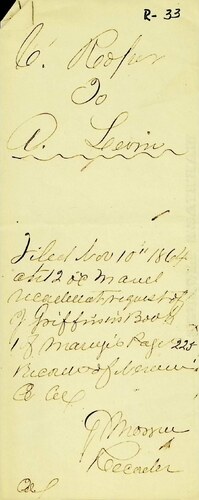 R-33
C. Roper
To
D. Levin
Filed Nov 10th 1864
at 12 oc M and
recorded at request of
J Griffin in Book
1 of Page 225
Records of
Co Cal
Recorder